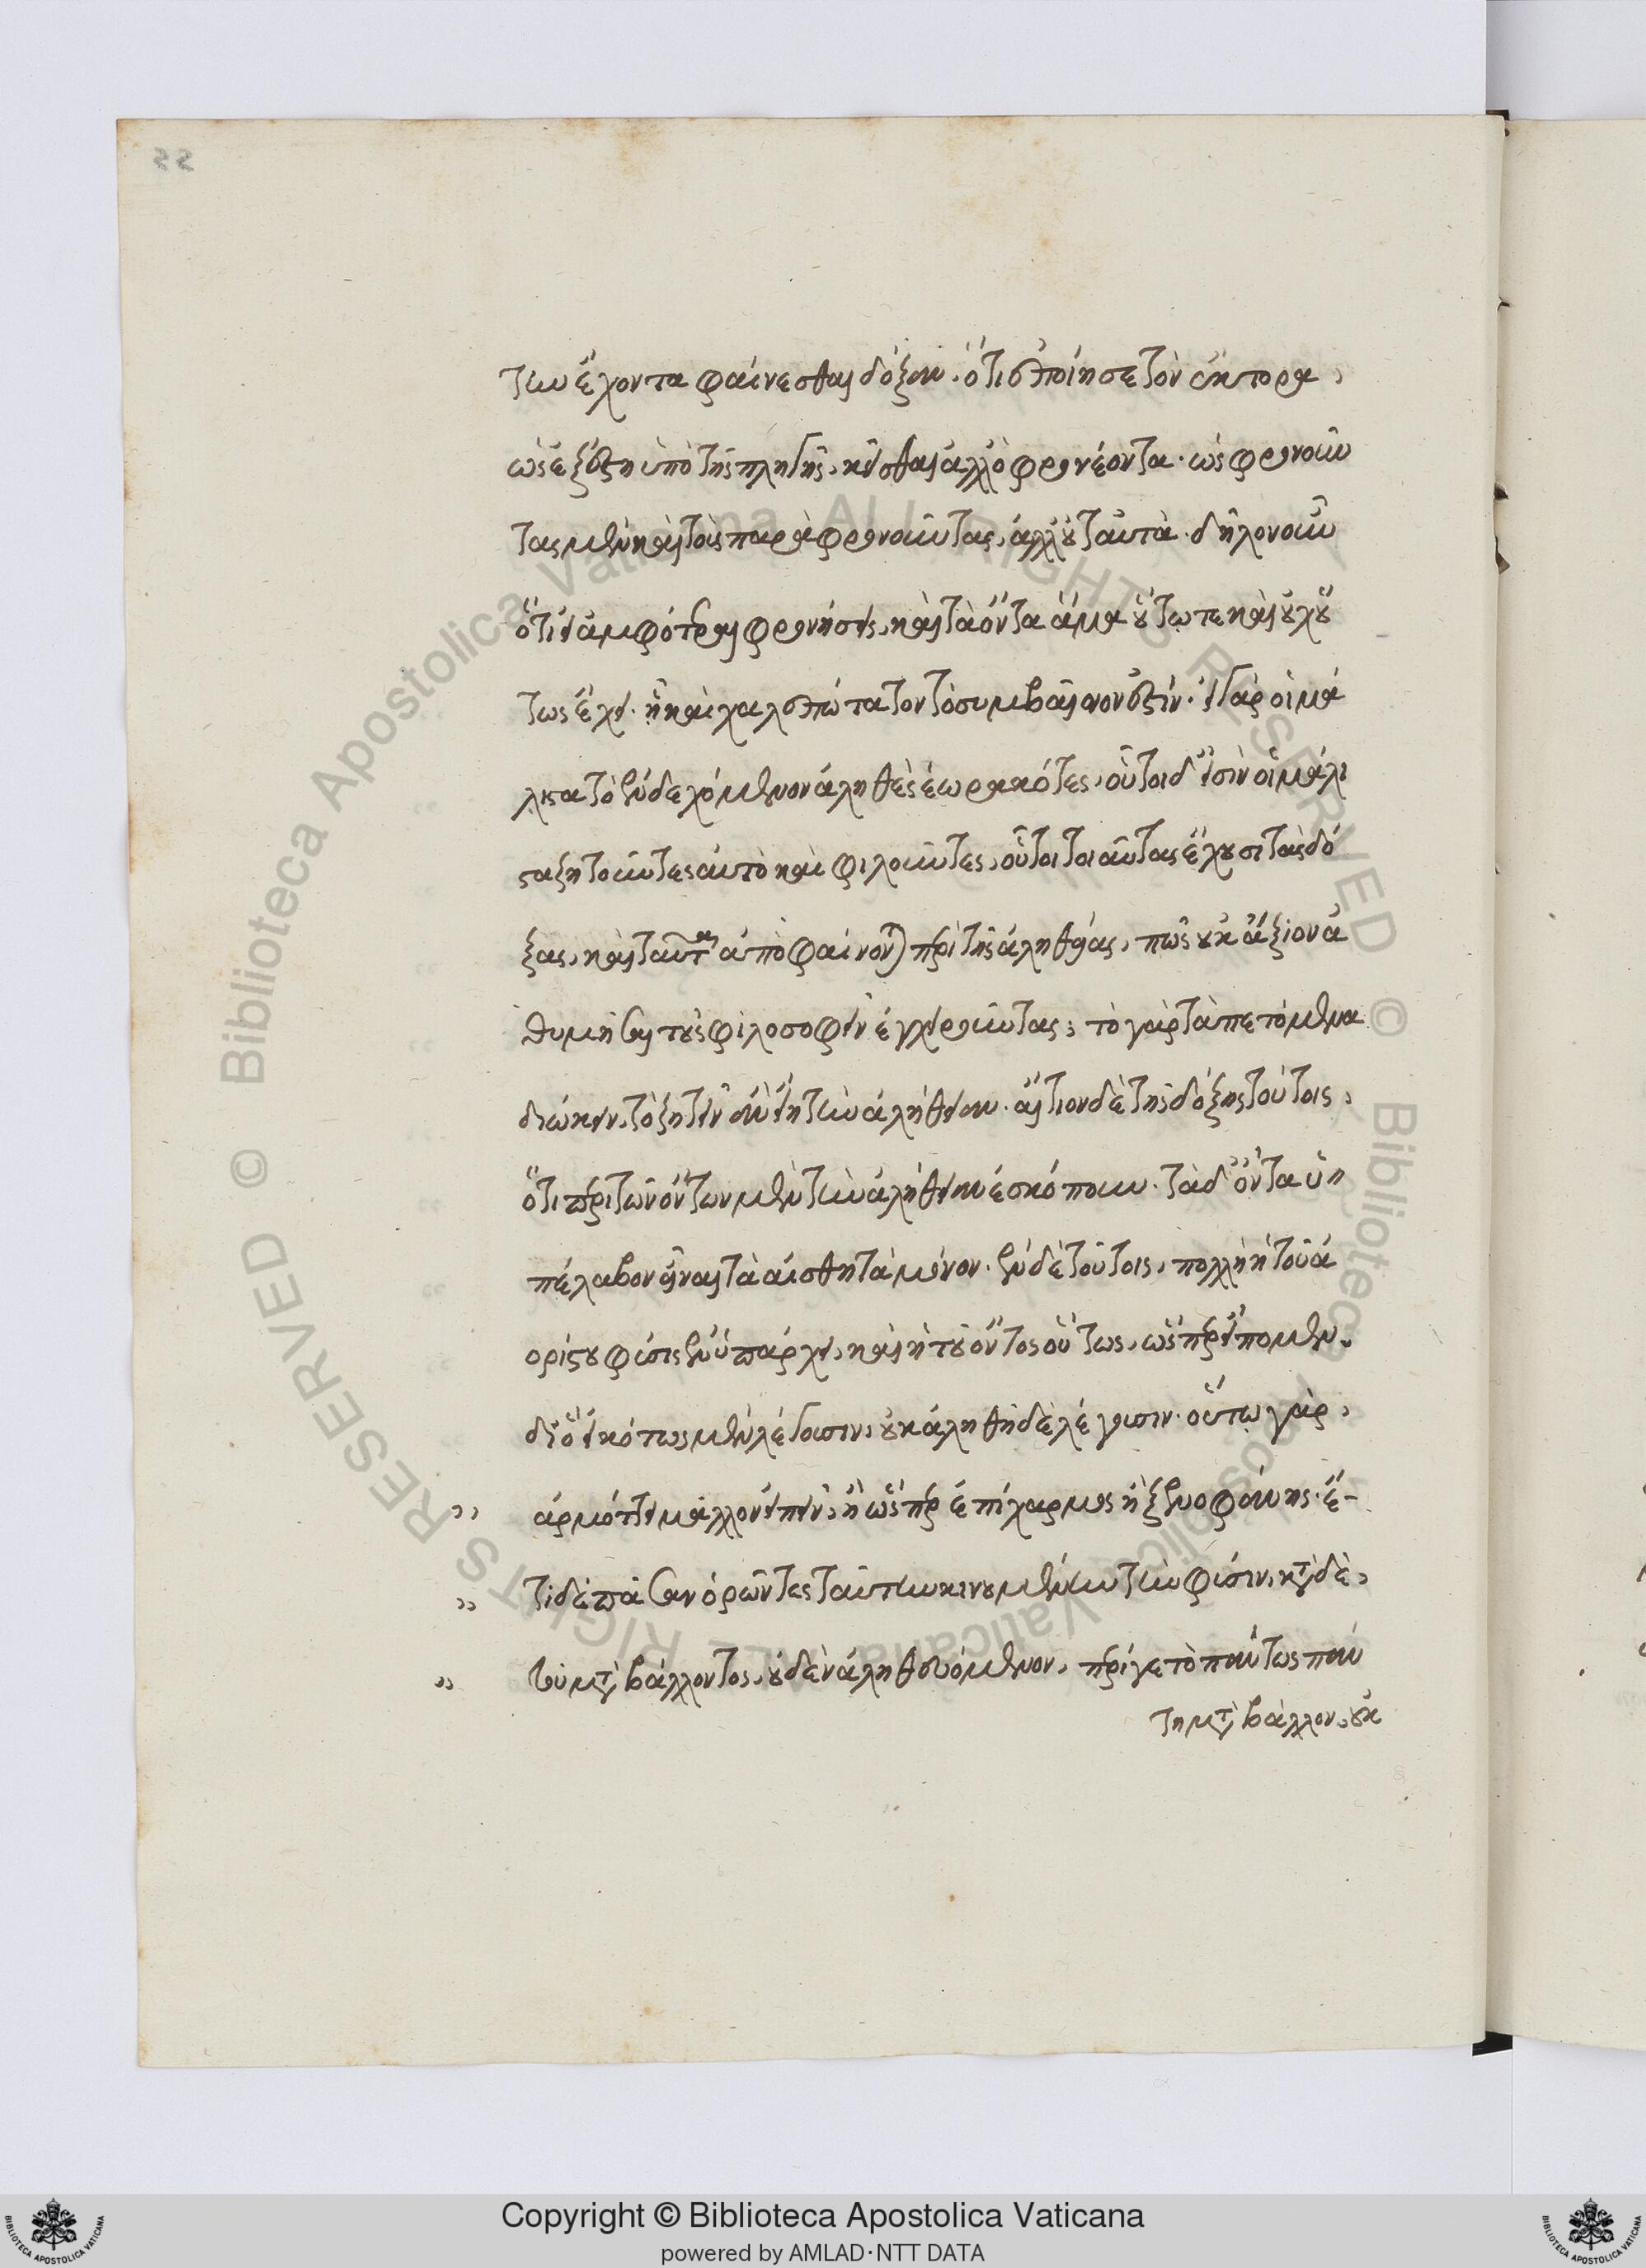 την ἔχοντα φαίνεσθαι δόξαν. ὅτι ἐποίησε τὸν ἕκτορα,
ὡς ἐξέστη ὑπὸ τῆς πληγῆς, κεῖσθαι ἀλλοφρονέοντα. ὡς φρονοῦν
τας μὲν καὶ τοὺς παραφρονοῦντας, ἀλλ' οὐ ταὐτὰ. δῆλον οὖν
ὅτι εἰ ἀμφότεραι φρονήσεις, καὶ τὰ ὄντα ἅμα οὕτω τε καὶ οὐχ οὕ
τως ἔχει. ᾗ καὶ χαλεπώτατον τὸ συμβαῖνον ἐστίν. εἰ γὰρ οἱ μά
λιστα τὸ ἐνδεχόμενον ἀληθὲς ἑωρακότες, οὗτοι δ' εἰσὶν οἱ μάλι
στα ζητοῦντες αὐτὸ καὶ φιλοῦντες, οὗτοι τοιαύτας ἔχουσι τὰς δό
ξας, καὶ ταῦτα ἀποφαίνονται περὶ τῆς ἀληθείας, πῶς οὐκ ἄξιον ἀ
θυμῆσαι τοὺς φιλοσοφεῖν ἐγχειροῦντας; τὸ γὰρ τὰ πετόμενα
διώκειν, τὸ ζητεῖν ἂν εἴη τὴν ἀλήθειαν. αἴτιον δὲ τῆς δόξης τούτοις,
ὅτι περὶ τῶν ὄντων μὲν τὴν ἀλήθειαν ἐσκόπουν. τὰ δ' ὄντα ὑ
πέλαβον εἶναι τὰ αἰσθητὰ μόνον. ἐν δὲ τούτοις, πολλὴ ἡ τοῦ ἀ
ορίστου φύσις ἐνυπάρχει, καὶ ἡ τοῦ ὄντος οὕτως, ὥσπερ εἴπομεν.
διὸ εἰκότως μὲν λέγουσιν, οὐκ ἀληθῆ δὲ λέγουσιν. οὕτω γὰρ,
ἁρμόττει μᾶλλον εἰπεῖν, ἢ ὥσπερ ἐπίχαρμος ἢ ξενοφάνης. ἔ-
τι δὲ πᾶσαν ὁρῶντες ταύτην κινουμένην τὴν φύσιν, κατὰ δὲ,
τοῦ μεταβάλλοντος, οὐδὲν ἀληθευόμενον, περί γε τὸ πάντως πάν
τη μεταβάλλον, οὐκ